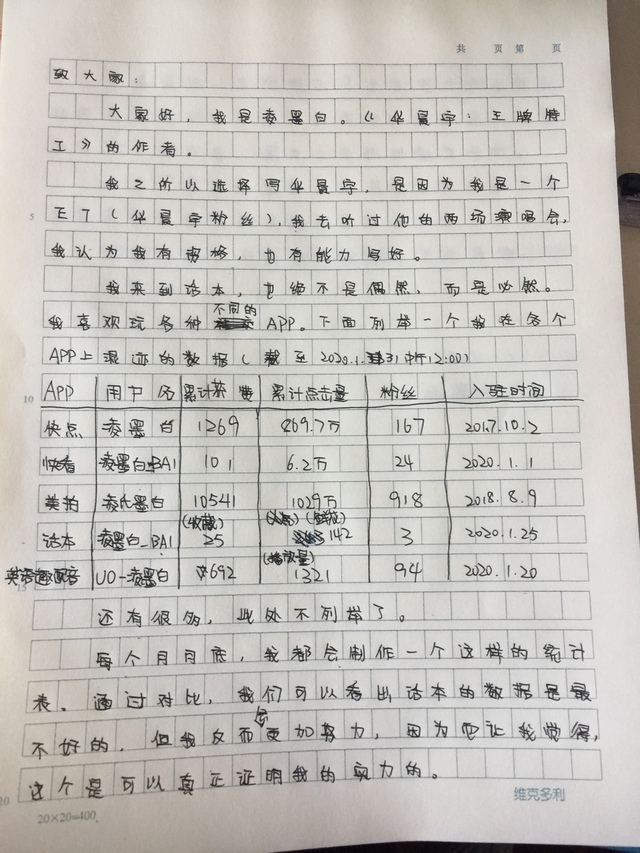 共 页 第 页
致大家：
大家好，我是凌墨白。《华晨宇：王牌特
工》的作者。
我之所以选择写华晨宇，是因为我是一个
ET（华晨宇粉丝），我去听过他的两场演唱会，
5
我认为我有资格，也有能力写好。
我来到话本，也绝不是偶然，而是必然。
我喜欢玩各种不同的APP。下面列举一个我在各个
APP上混迹的数据（截至2020.1.31中午12:00）
10
APP 用户名 累计获赞 累计点击量 粉丝 入驻时间
快点 凌墨白 1269 269.7万 167 2017.10.2
快看 凌墨白-BA1 101 6.2万 24 2020.1.1
美拍 凌氏墨白 10541 1029万 918 2018.8.9
话本 凌墨白_BA1 (收藏) 25 142 3 2020.1.25
英语趣配音 UO-凌墨白 692 (播放量) 1321 94 2020.1.20
15
还有很多，此处不列举了。
每个月月底，我都会制作一个这样的统计
表。通过对比，我们可以看出话本的数据是最
不好的，但我反而会更加努力，因为它让我觉得，
这个是可以真正证明我的实力的。
20
20×20=400
维克多利